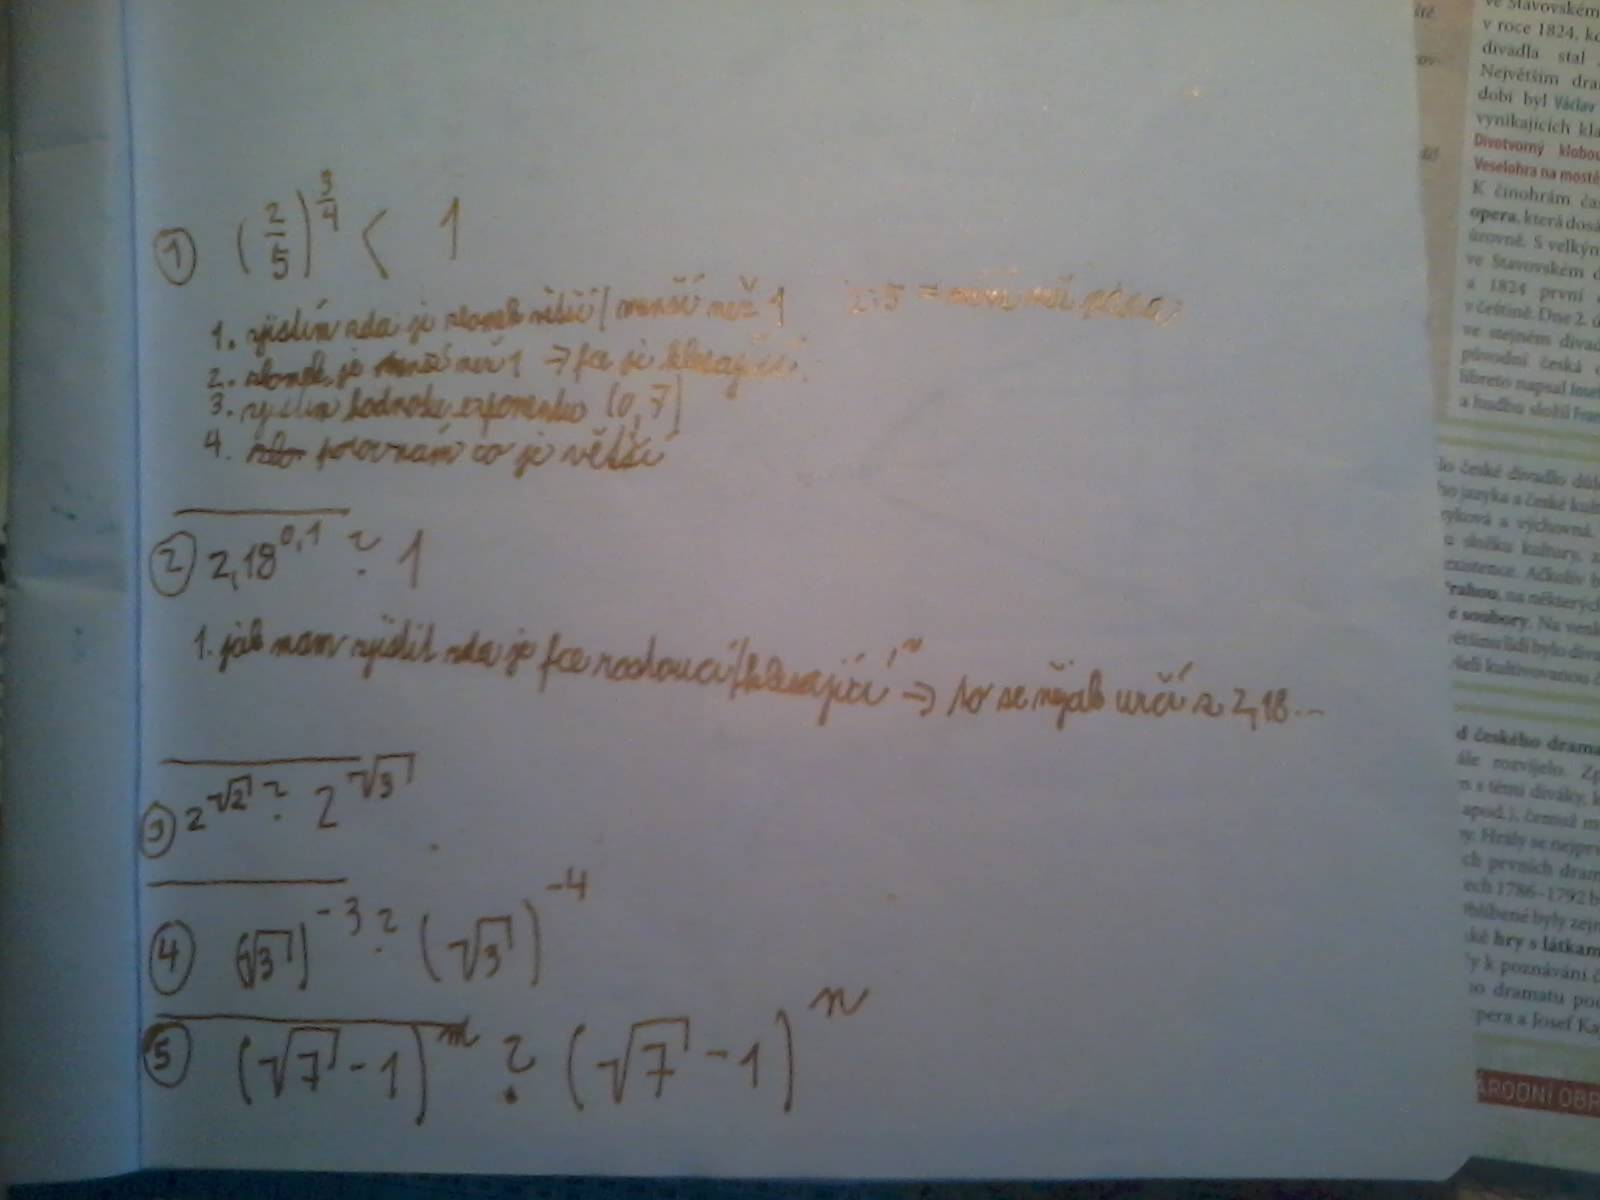 ① (2/5)^(3/4) < 1
1. zjistím zda je zlomek větší / menší než 1 2:5 =
2. zlomek je menší než 1 → fce je klesající
3. zjistím hodnotu exponentu (0,7)
4. porovnám co je větší
② 2,18^0,1 ? 1
1. jak mam zjistit zda je fce rostoucí/klesající → to se nějak určí z 2,18...
③ 2^√2 ? 2^√3
④ (√3)^-3 ? (√3)^-4
⑤ (√7 - 1)^m ? (√7 - 1)^n
ve Stavovském
v roce 1824, kd
divadla stal
Největším dra
dobi byl Václav
vynikajících kla
Divotvorný klobou
Veselohra na mostě
K činohrám ča
opera, která dosá
úrovně. S velkým
ve Stavovském d
a 1824 první
v češtině. Dne 2. ú
ve stejném divad
původní česká
libreto napsal Jose
a hudbu složil Fran
lo české divadlo důl
ho jazyka a české kult
zyková a výchovná.
u složku kultury, a
existence. Ačkoliv b
Prahou, na některých
é soubory. Na venk
většinu lidí bylo diva
šeli kultivovanou č
d českého drama
ále rozvíjelo. Zp
m s těmi diváky, k
apod.), čemuž m
y. Hrály se nejprv
ch prvních dram
ech 1786–1792 b
blíbené byly zejn
ké hry s látkam
y k poznávání č
ho dramatu poc
pera a Josef Ka
ÁRODNÍ OBR